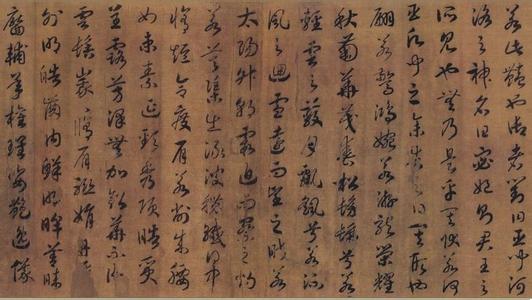 若此艷也御者對曰臣聞河
洛之神名曰宓妃則君王之
所見也無乃是乎其狀若何
臣願聞之余告之曰其形也
翩若驚鴻婉若游龍榮曜
秋菊華茂春松髣髴兮若
輕雲之蔽月飄颻兮若流
風之迴雪遠而望之皎若
太陽升朝霞迫而察之灼
若芙蕖出淥波穠纖得中
脩短合度肩若削成腰
如束素延頸秀項皓質
呈露芳澤無加鉛華不御
雲髻峩峩脩眉聯娟丹唇
外朗皓齒內鮮明眸善睞
靨輔承權瓌姿艷逸儀